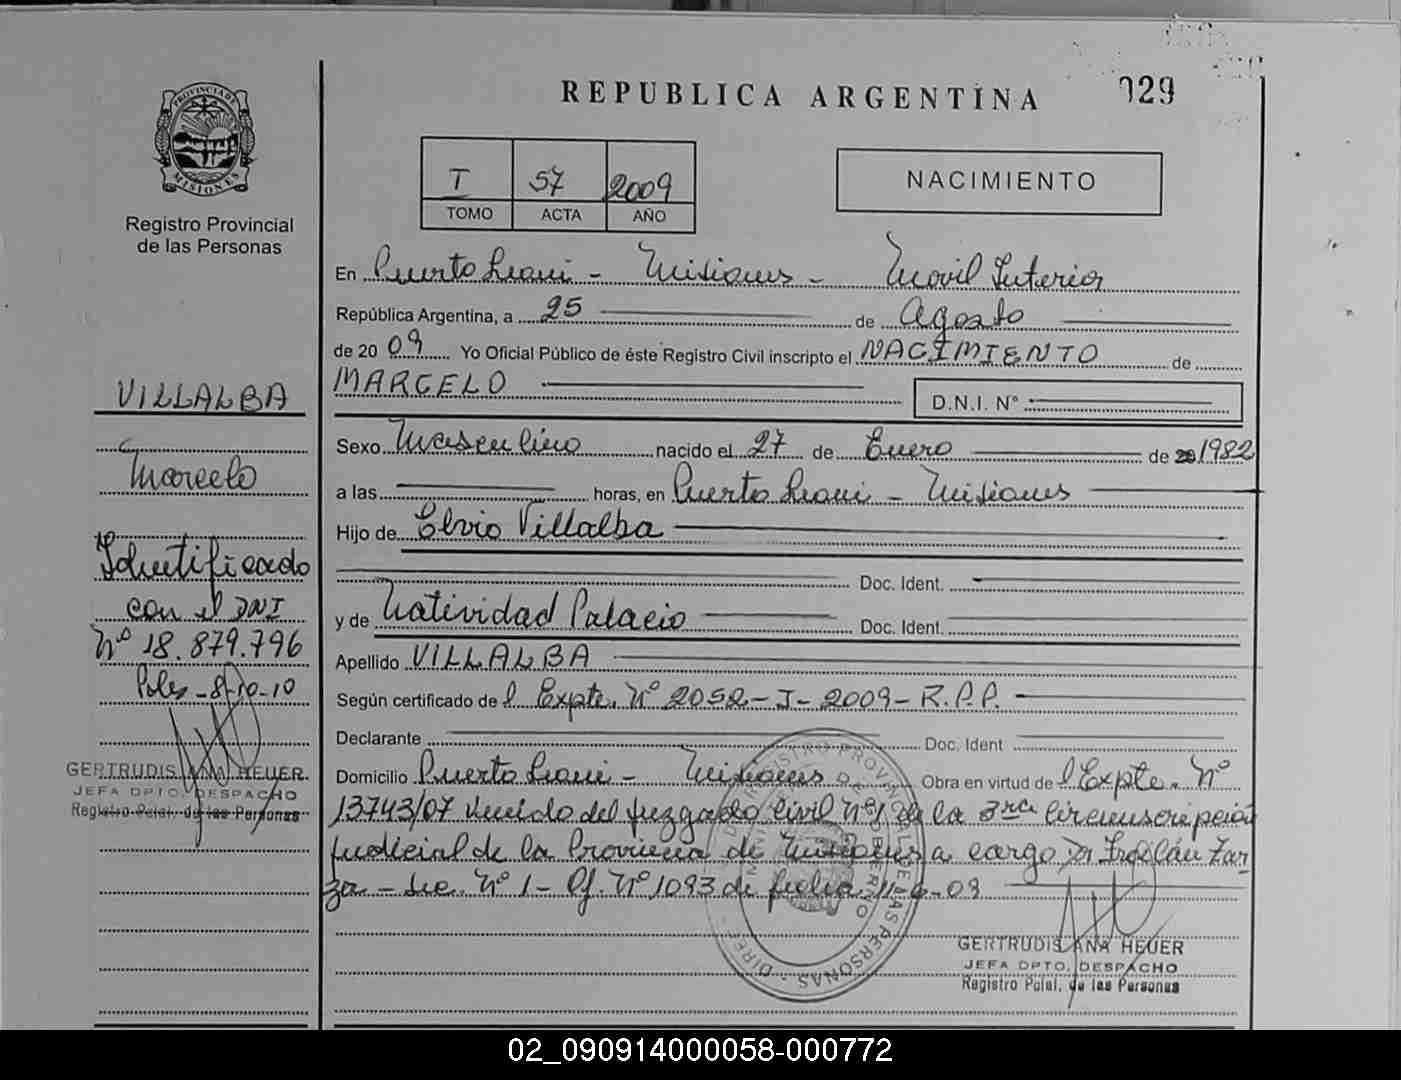 REPUBLICA ARGENTINA
029
PROVINCIA DE MISIONES
Registro Provincial
de las Personas
I 57 2009
TOMO ACTA AÑO
NACIMIENTO
En Puerto Leoni - Misiones - Movil Interior
República Argentina, a 25 de Agosto
de 20 09 Yo Oficial Público de éste Registro Civil inscripto el NACIMIENTO de
MARCELO
D.N.I. Nº
Sexo Masculino nacido el 27 de Enero de 20 1982
a las horas, en Puerto Leoni - Misiones
Hijo de Elvio Villalba
Doc. Ident.
y de Natividad Palacio Doc. Ident.
Apellido VILLALBA
Según certificado de l Expte. Nº 2052-J-2009-R.P.P.
Declarante Doc. Ident
Domicilio Puerto Leoni - Misiones Obra en virtud de l Expte. Nº
13743/07 venido del Juzgado Civil Nº1 de la 3ra Circunscripción
Judicial de la Provincia de Misiones a cargo Dr Froilán Zar-
za - Sec. Nº 1 - Of. Nº 1093 de fecha 11-6-09
GERTRUDIS ANA HEUER
JEFA DPTO. DESPACHO
Registro Pcial. de las Personas
VILLALBA
Marcelo
Identificado
con el DNI
Nº 18.879.796
Pdas - 8-10-10
GERTRUDIS ANA HEUER
JEFA DPTO. DESPACHO
Registro Pcial. de las Personas
02_090914000058-000772